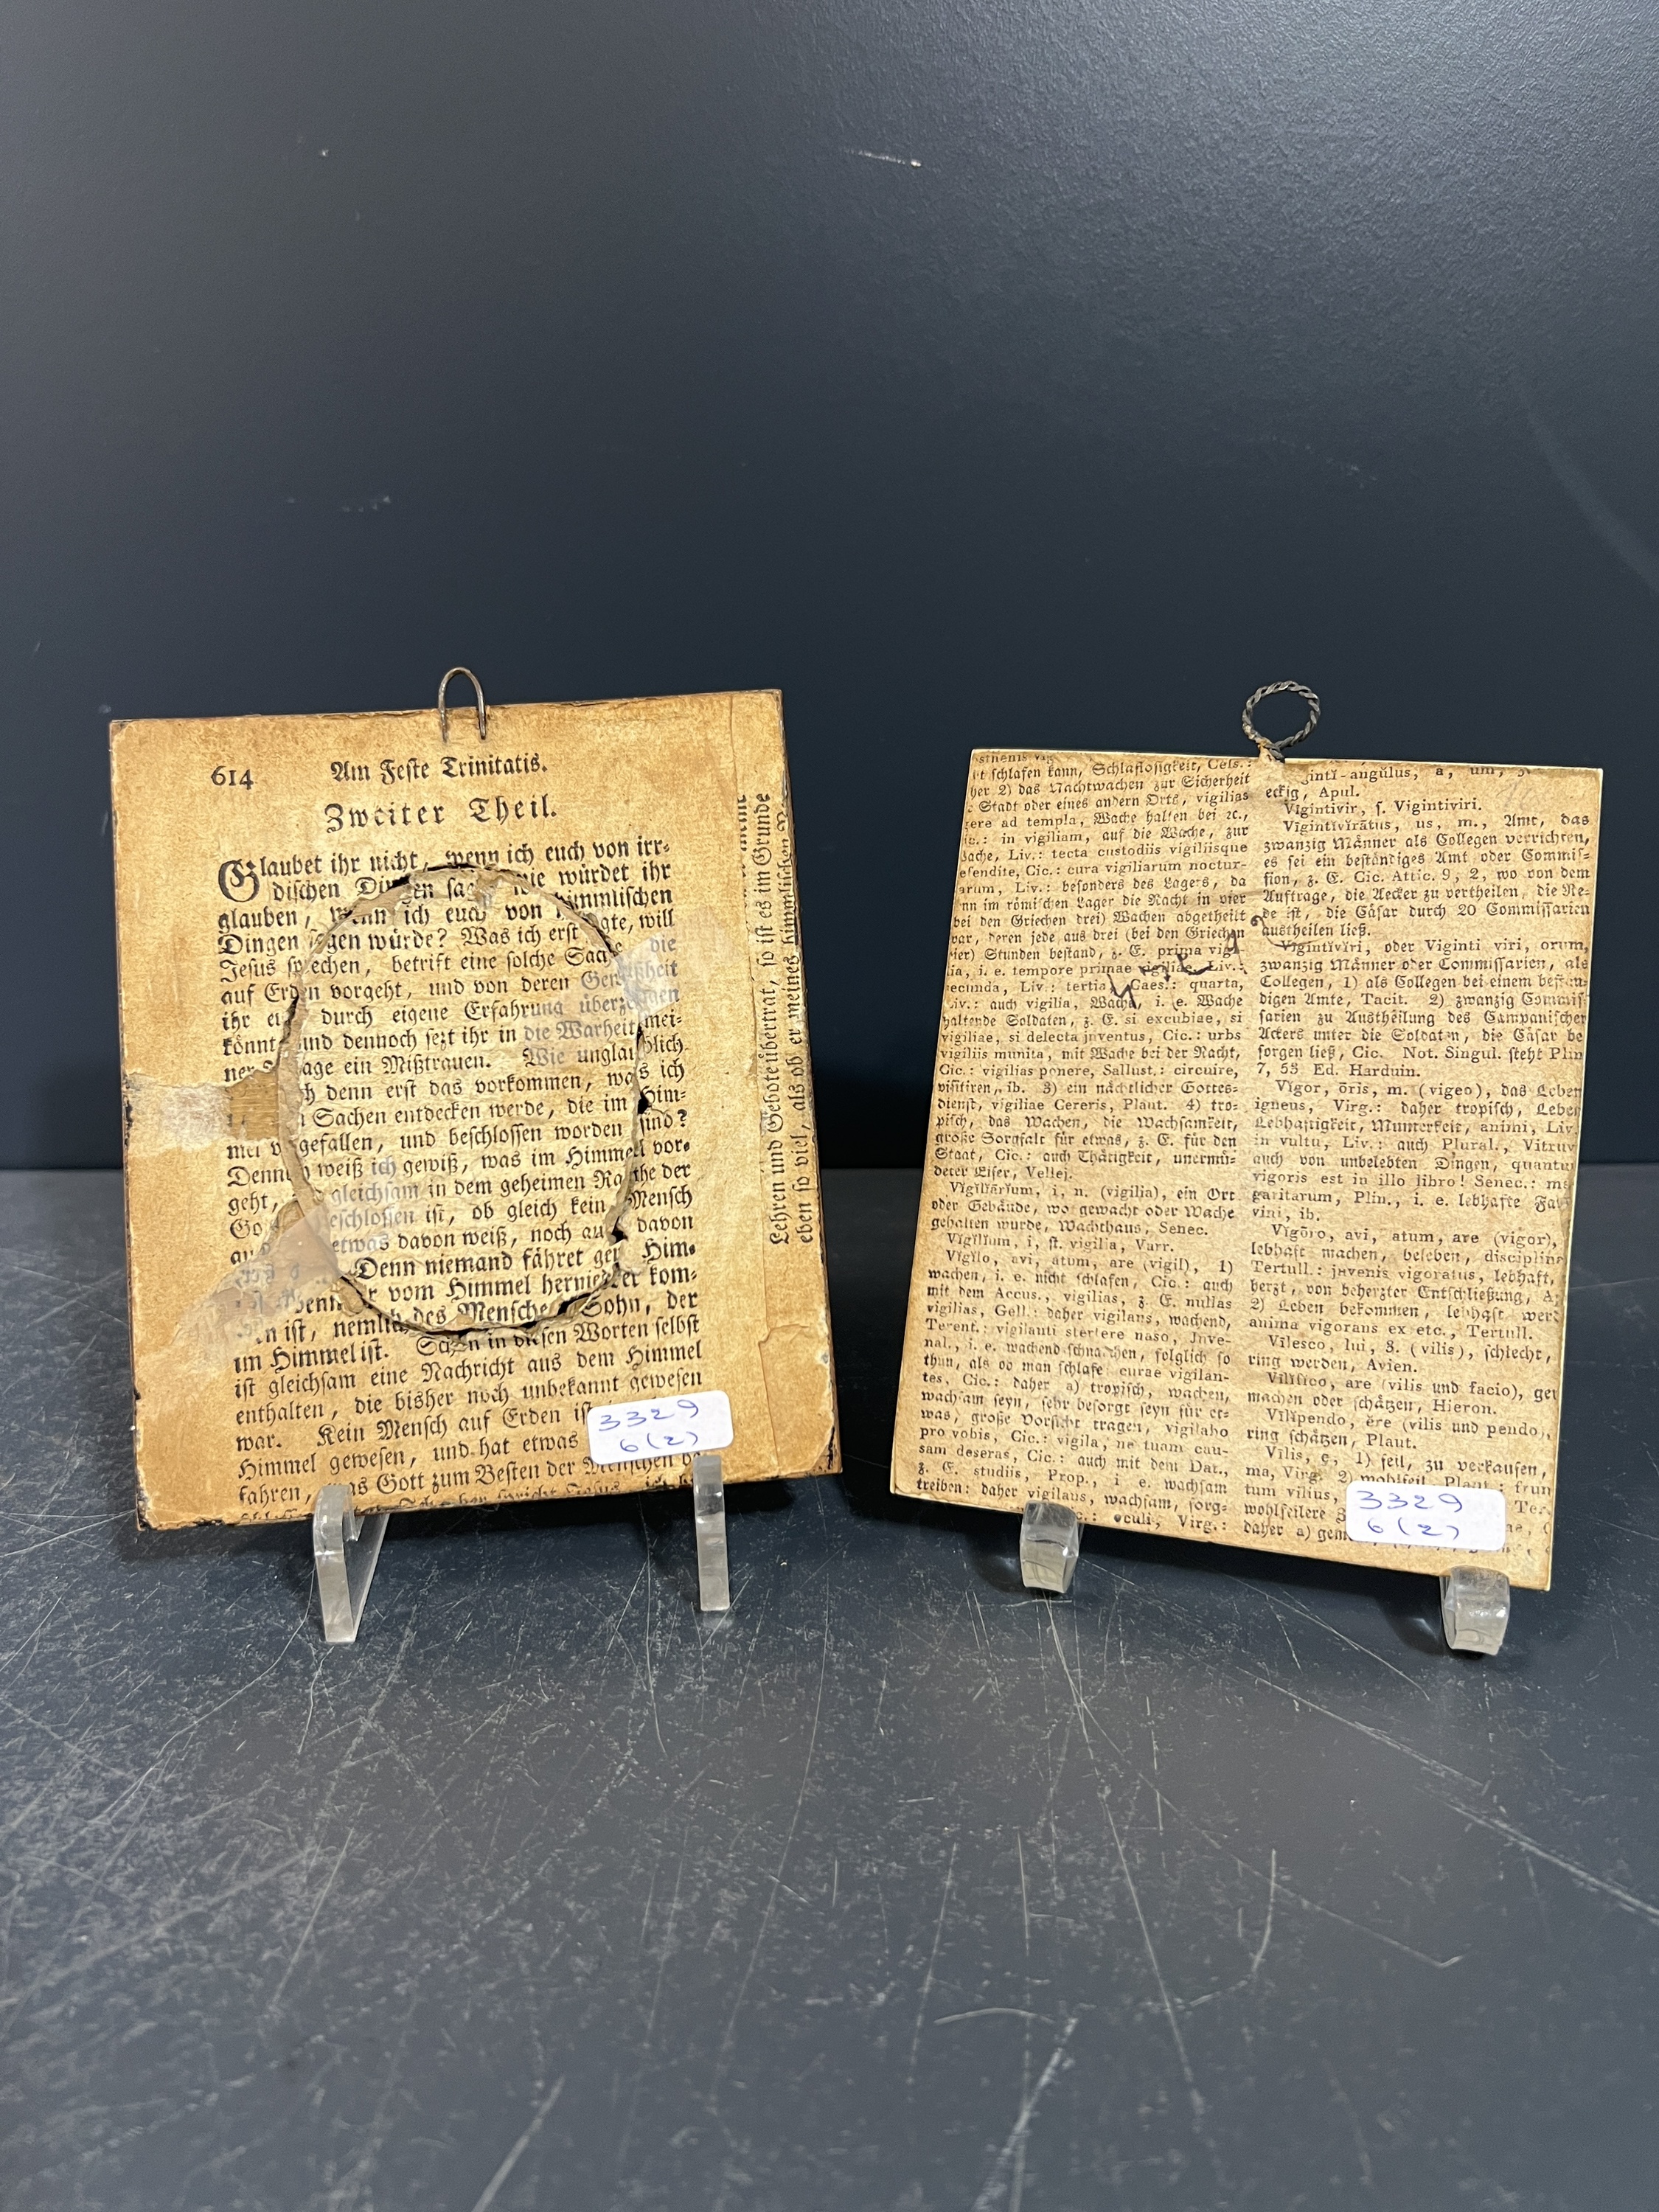 614 Am Feste Trinitatis.
Zweiter Theil.
Glaubet ihr nicht, wenn ich euch von irr-
dischen Dingen sage, wie würdet ihr
glauben, wenn ich euch von himmlischen
Dingen sagen würde? Was ich erst sagte, will
Jesus sprechen, betrift eine solche Sache, die
auf Erden vorgeht, und von deren Gewißheit
ihr durch eigene Erfahrung überzeugen
könnt und dennoch sezt ihr in die Warheit mei-
ner Sage ein Mißtrauen. Wie unglaublich
denn erst das vorkommen, was ich
Sachen entdecken werde, die im Him-
mel vorgefallen, und beschlossen worden sind?
Denn ich weiß ich gewiß, was im Himmel vor-
geht, gleichsam in dem geheimen Rathe der
beschlossen ist, ob gleich kein Mensch
etwas davon weiß, noch davon
Denn niemand fähret gen Him-
vom Himmel hernieder kom-
men ist, nemlich des Menschen Sohn, der
im Himmel ist. Schon in diesen Worten selbst
ist gleichsam eine Nachricht aus dem Himmel
enthalten, die bisher noch unbekannt gewesen
war. Kein Mensch auf Erden ist
Himmel gewesen, und hat etwas
fahren, was Gott zum Besten der Menschen
Lehren und Gebote übertrat, so ist es im Grunde
eben so viel, als ob er meines himmlischen
3329
6 (2)
schlafen kann, Schlaflosigkeit, Cels.:
her 2) das Nachtwachen zur Sicherheit
Stadt oder eines andern Orts, vigilias
ad templa, Wache halten bei ꝛc.,
in vigiliam, auf die Wache, zur
Wache, Liv.: tecta custodiis vigiliisque
Cic.: cura vigiliarum noctur-
Liv.: besonders des Lagers, da
im römischen Lager die Nacht in vier
bei den Griechen drei) Wachen abgetheilt
war, deren jede aus drei (bei den Griechen
vier) Stunden bestand, z. E. prima vigi-
lia, i. e. tempore primae vigiliae, Liv.:
secunda, Liv.: tertia, Caes.: quarta,
Liv.: auch vigilia, Wache, i. e. Wache
haltende Soldaten, z. E. si excubiae, si
vigiliae, si delecta juventus, Cic.: urbs
vigiliis munita, mit Wache bei der Nacht,
Cic.: vigilias ponere, Sallust.: circuire,
visitiren, ib. 3) ein nächtlicher Gottes-
dienst, vigiliae Cereris, Plaut. 4) tro-
pisch, das Wachen, die Wachsamkeit,
große Sorgfalt für etwas, z. E. für den
Staat, Cic.: auch Thätigkeit, unermü-
deter Eifer, Vellej.
Vigiliarium, i, n. (vigilia), ein Ort
oder Gebäude, wo gewacht oder Wache
gehalten wurde, Wachthaus, Senec.
Vigilium, i, st. vigilia, Varr.
Vigilo, avi, atum, are (vigil), 1)
wachen, i. e. nicht schlafen, Cic.: auch
mit dem Accus., vigilias, z. E. nullas
vigilias, Gell.: daher vigilans, wachend,
Terent.: vigilanti stertere naso, Juve-
nal., i. e. wachend schnarchen, folglich so
thun, als ob man schlafe: curae vigilan-
tes, Cic.: daher a) tropisch, wachen,
wachsam seyn, sehr besorgt seyn für et-
was, große Vorsicht tragen, vigilabo
pro vobis, Cic.: vigila, ne tuam cau-
sam deseras, Cic.: auch mit dem Dat.,
z. E. studiis, Prop., i e. wachsam
treiben: daher vigilans, wachsam, sorg-
oculi, Virg.:
ginti-angulus, a, um,
eckig, Apul.
Vigintivir, s. Vigintiviri.
Vigintivirātus, us, m., Amt, das
zwanzig Männer als Collegen verrichten,
es sei ein beständiges Amt oder Commis-
sion, z. E. Cic. Attic. 9, 2, wo von dem
Auftrage, die Aecker zu vertheilen, die Re-
de ist, die Cäsar durch 20 Commissarien
austheilen ließ.
Vigintiviri, oder Viginti viri, orum,
zwanzig Männer oder Commissarien, als
Collegen, 1) als Collegen bei einem bestän-
digen Amte, Tacit. 2) zwanzig Commis-
sarien zu Austheilung des Campanischen
Ackers unter die Soldaten, die Cäsar be
sorgen ließ, Cic. Not. Singul. steht Plin
7, 53 Ed. Harduin.
Vigor, ōris, m. (vigeo), das Leben
igneus, Virg.: daher tropisch, Leben
Lebhaftigkeit, Munterkeit, animi, Liv.
in vultu, Liv.: auch Plural., Vitruv
auch von unbelebten Dingen, quantu
vigoris est in illo libro! Senec.: ma
garitarum, Plin., i. e. lebhafte Far
vini, ib.
Vigōro, avi, atum, are (vigor),
lebhaft machen, beleben, disciplina
Tertull.: juvenis vigoratus, lebhaft,
herzt, von beherzter Entschließung, A
2) Leben bekommen, lebhaft wer
anima vigorans ex etc., Tertull.
Vīlesco, lui, 3. (vilis), schlecht,
ring werden, Avien.
Vilifico, are (vilis und facio), ger
machen oder schätzen, Hieron.
Vīlipendo, ĕre (vilis und pendo),
ring schätzen, Plaut.
Vīlis, e, 1) feil, zu verkaufen,
ma, Virg. 2) wohlfeil, Plaut.: frun
tum vilius,
wohlfeilere
daher a) gem
3329
6 (2)